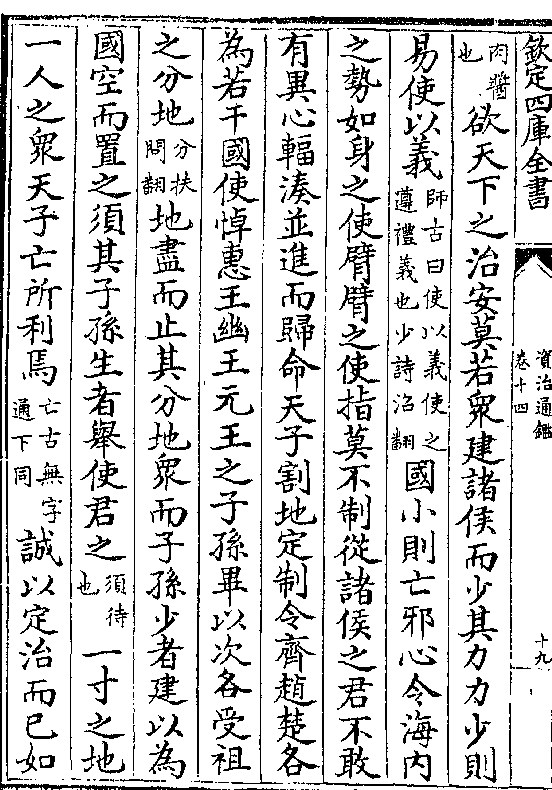 欽定四庫全書
資治通鑑
卷十四
十九
肉醬也欲天下之治安莫若衆建諸侯而少其力力少則
易使以義師古曰使以義使之遵禮義也少詩沼翻國小則亡邪心令海内
之勢如身之使臂臂之使指莫不制從諸侯之君不敢
有異心輻湊並進而歸命天子割地定制令齊趙楚各
為若干國使悼惠王幽王元王之子孫畢以次各受祖
之分地分扶問翻地盡而止其分地衆而子孫少者建以為
國空而置之須其子孫生者舉使君之須待也一寸之地
一人之衆天子亡所利焉亡古無字通下同誠以定治而已如